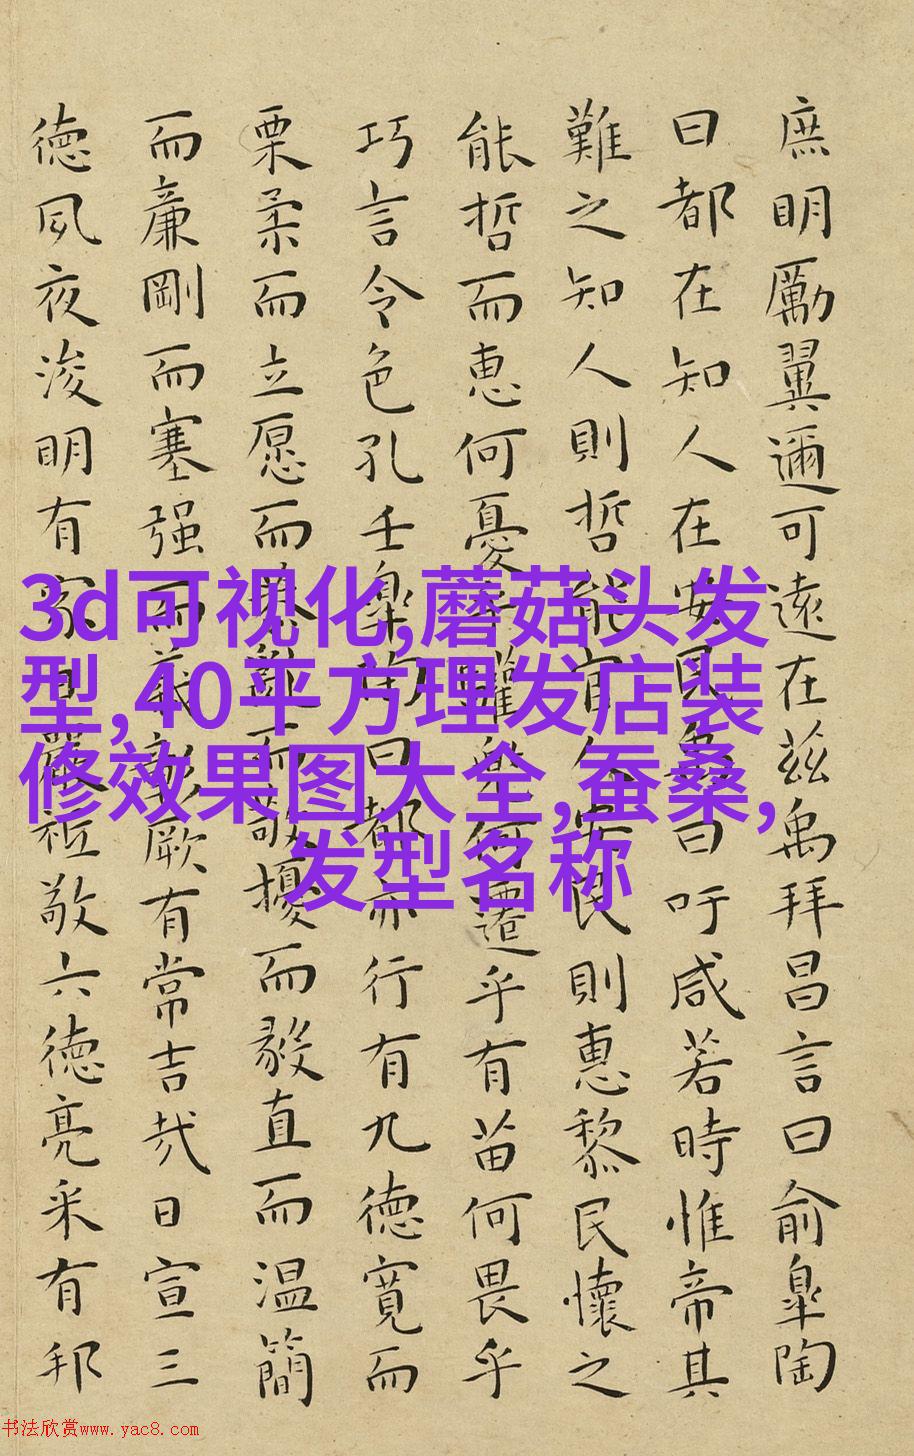 庶明厲翼邇可遠在茲禹拜昌言曰俞皐陶
曰都在知人在安民禹曰吁咸若時惟帝其
難之知人則哲能官人安民則惠黎民懷之
能哲而恵何憂乎驩兜何遷乎有苗何畏乎
巧言令色孔壬皐陶曰都亦行有九德寬而
栗柔而立愿而恭亂而敬擾而毅直而温簡
而廉剛而塞强而義彰厥有常吉哉日宣三
德夙夜浚明有家日嚴祗敬六德亮采有邦
3d可视化,蘑菇头发
型,40平方理发店装
修效果图大全,蚕桑,
发型名称
书法欣赏www.yac8.com